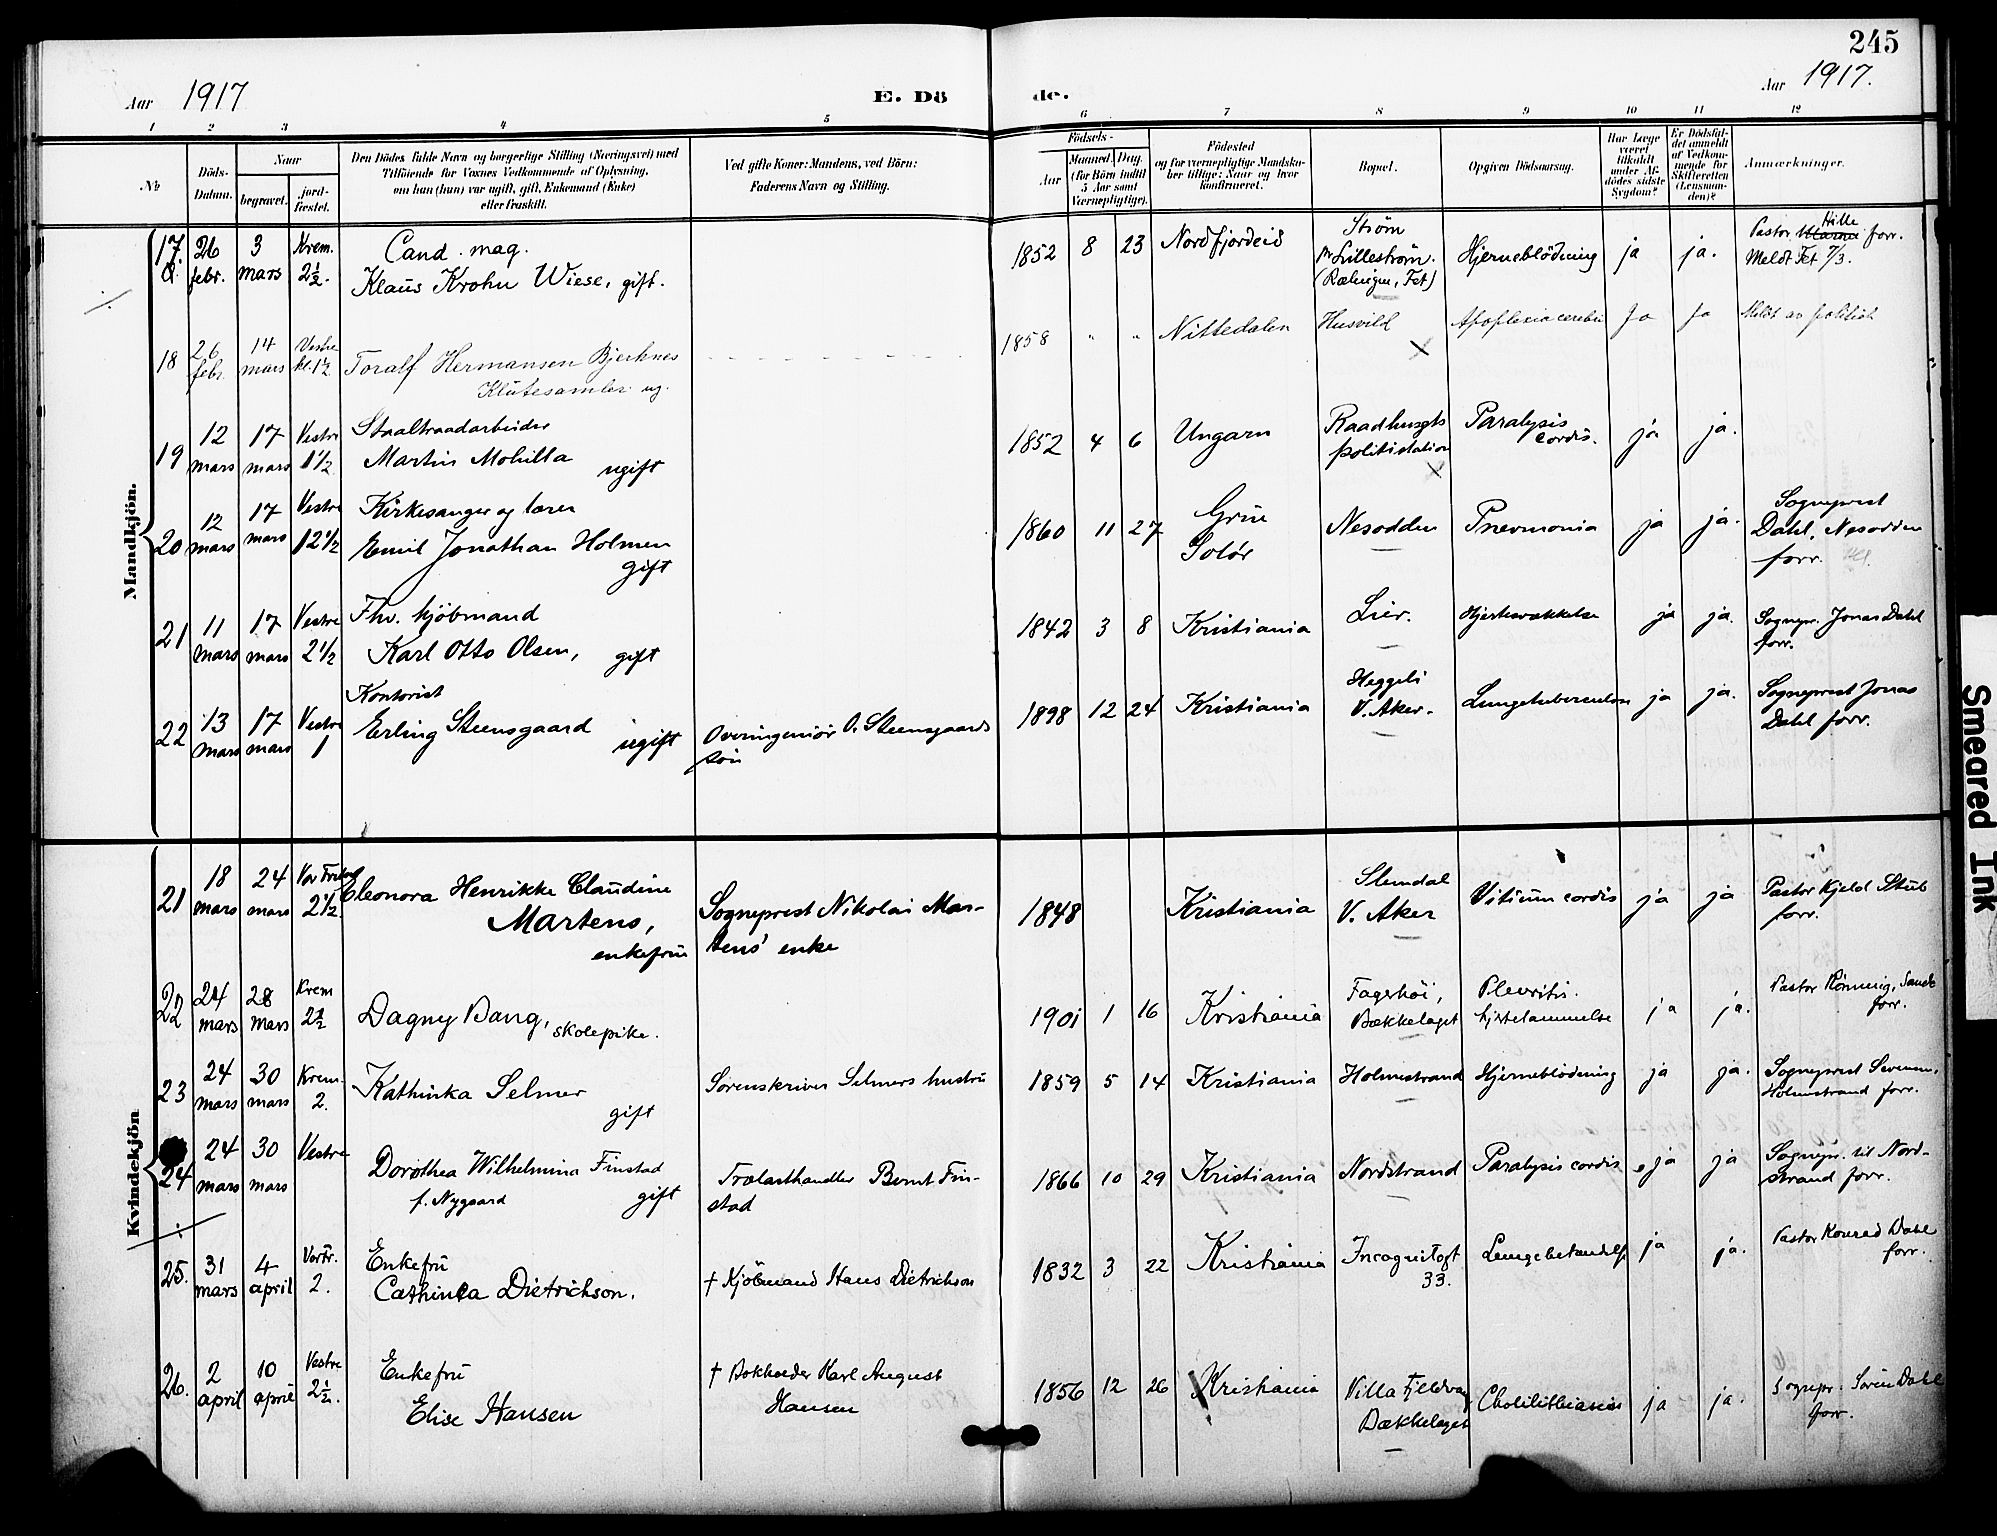 245
Aar 1917
E. Dö
de.
Aar 1917.
1 2 3 4 5 6 7 8 9 10 11 12
No
Döds-Datum.
Naar
begravet.
jord-fæstet.
Den Dödes fulde Navn og borgerlige Stilling (Næringsvei) med
Tilföiende for Voxnes Vedkommende af Oplysning,
om han (hun) var ugift, gift, Enkemand (Enke)
eller fraskilt.
Ved gifte Koner: Mandens, ved Börn:
Faderens Navn og Stilling.
Födsels-
Aar
Maaned. Dag.
(for Börn indtil
5 Aar samt
Værnepligtige).
Födested
og for værnepligtige Mandska-
ber tillige: Naar og hvor
konfirmeret.
Bopæl.
Opgiven Dödsaarsag.
Har Læge
været
tilkaldt
under Af-
dödes sidste
Sygdom?
Er Dödsfal-
det anmeldt
af Vedkom-
mende for
Skifteretten
(Lensman-
den)?
Anmærkninger.
Mandkjön.
17 26 febr. 3 mars Krem. 2½.
Cand. mag.
Klaus Krohn Wiese, gift.
1852 8 23 Nordfjordeid
Strøm
pr Lillestrøm.
(Rælingen, Fet)
Hjerneblödning ja ja.
Pastor Hille forr.
Meldt Fet 7/3.
18 26 febr. 14 mars Vestre kl. 1½
Toralf Hermansen Bjerknes
Klutesamler ug.
1858 " " Nittedalen Husvild Apoplexia cerebri Ja Ja Meldt av politiet
19 12 mars 17 mars Vestre 1½
Staaltraadarbeider
Martin Mohilla
ugift
1852 4 6 Ungarn
Raadhusgts
politistation
Paralysis
cordis.
ja ja.
20 12 mars 17 mars Vestre 12½
Kirkesanger og lærer
Emil Jonathan Holmen
gift
1860 11 27
Grue
Solør
Nesodden Pnevmonia ja ja.
Sogneprest
Dahl, Nesodden
forr.
21 11 mars 17 mars Vestre 2½
Fhv. kjöbmand
Karl Otto Olsen, gift
1842 3 8 Kristiania Lier. Hjertesvækkelse ja ja.
Sognepr. Jonas Dahl
forr.
22 13 mars 17 mars Vestre 1
Kontorist
Erling Steensgaard
ugift
Overingeniör O. Steensgaards
sön
1898 12 24 Kristiania
Heggeli
V. Aker.
Lungetuberculose ja ja.
Sogneprest Jonas
Dahl forr.
Kvindekjön
21 18 mars 24 mars Vor Frelsers 2½
Eleonora Henrikke Claudine
Martens,
enkefrue
Sogneprest Nikolai Mar-
tens' enke
1848 Kristiania
Slemdal
V. Aker
Vitium cordis ja ja
Pastor Kjeld Stub
forr.
22 24 mars 28 mars Krem 2½
Dagny Bang, skolepike.
1901 1 16 Kristiania
Fagerhöi,
Bækkelaget
Plevritis.
hjertelammelse
ja ja.
Pastor Rönneig,
forr.
23 24 mars 30 mars Krem. 2.
Kathinka Selmer
gift
Sorenskriver Selmers hustru
1859 5 14 Kristiania Holmestrand Hjerneblödning ja ja.
Sogneprest
Holmestrand forr.
24 24 mars 30 mars Vestre
Dorothea Wilhelmina Finstad
f. Nygaard gift
Trælasthandler Bernt Fin-
stad
1866 10 29 Kristiania Nordstrand Paralysis cordis ja ja
Sognepr. til Nord-
strand forr.
25. 31 mars 4 april Vorfr. 2.
Enkefru
Cathinca Dietrichson.
† Kjöbmand Hans Dietrichson
1832 3 22 Kristiania
Incognitogt
33.
Lungebetændelse ja ja.
Pastor Konrad Dahl
forr.
26. 2 april 10 april Vestre 2½.
Enkefru
Elise Hansen
† Bokholder Karl August
Hansen
1856 12 26 Kristiania
Villa Fjeldvang
Bækkelaget
Cholelithiasis ja ja.
Sognepr. Sören Dahl
forr.
Smeared Ink